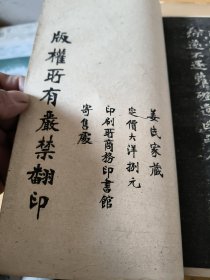 姜氏家藏
定價大洋捌元
印刷所商務印書館
寄售處
版權所有嚴禁翻印